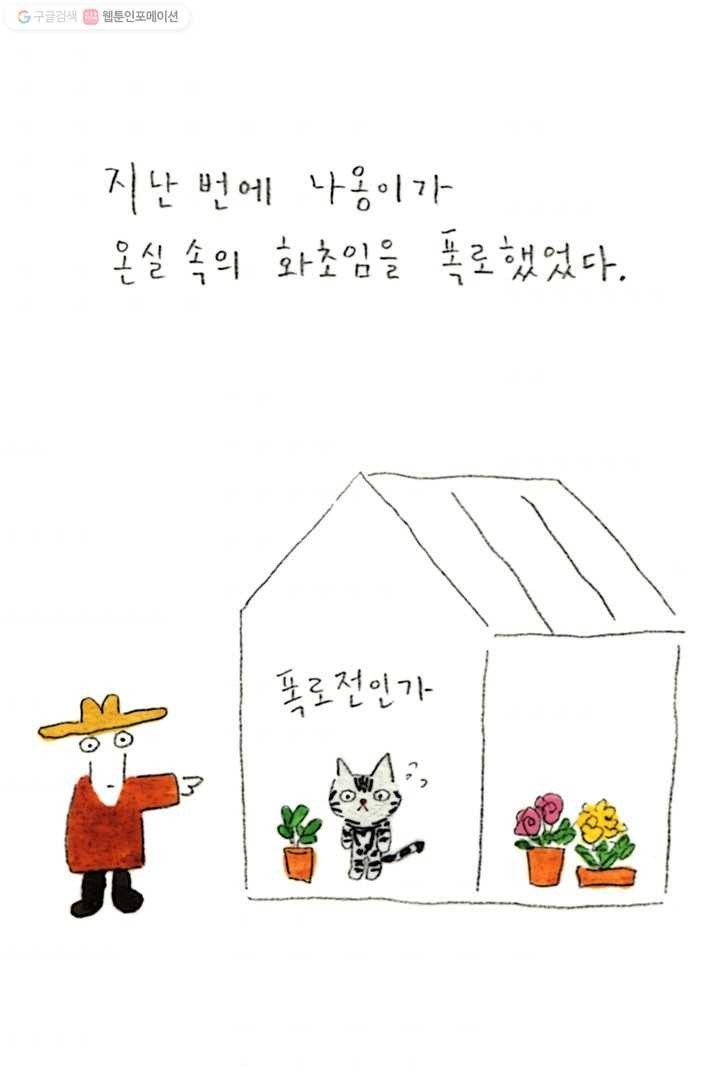 구글검색 웹툰인포메이션
지난 번에 나옹이가
온실 속의 화초임을 폭로했었다.
폭로전인가